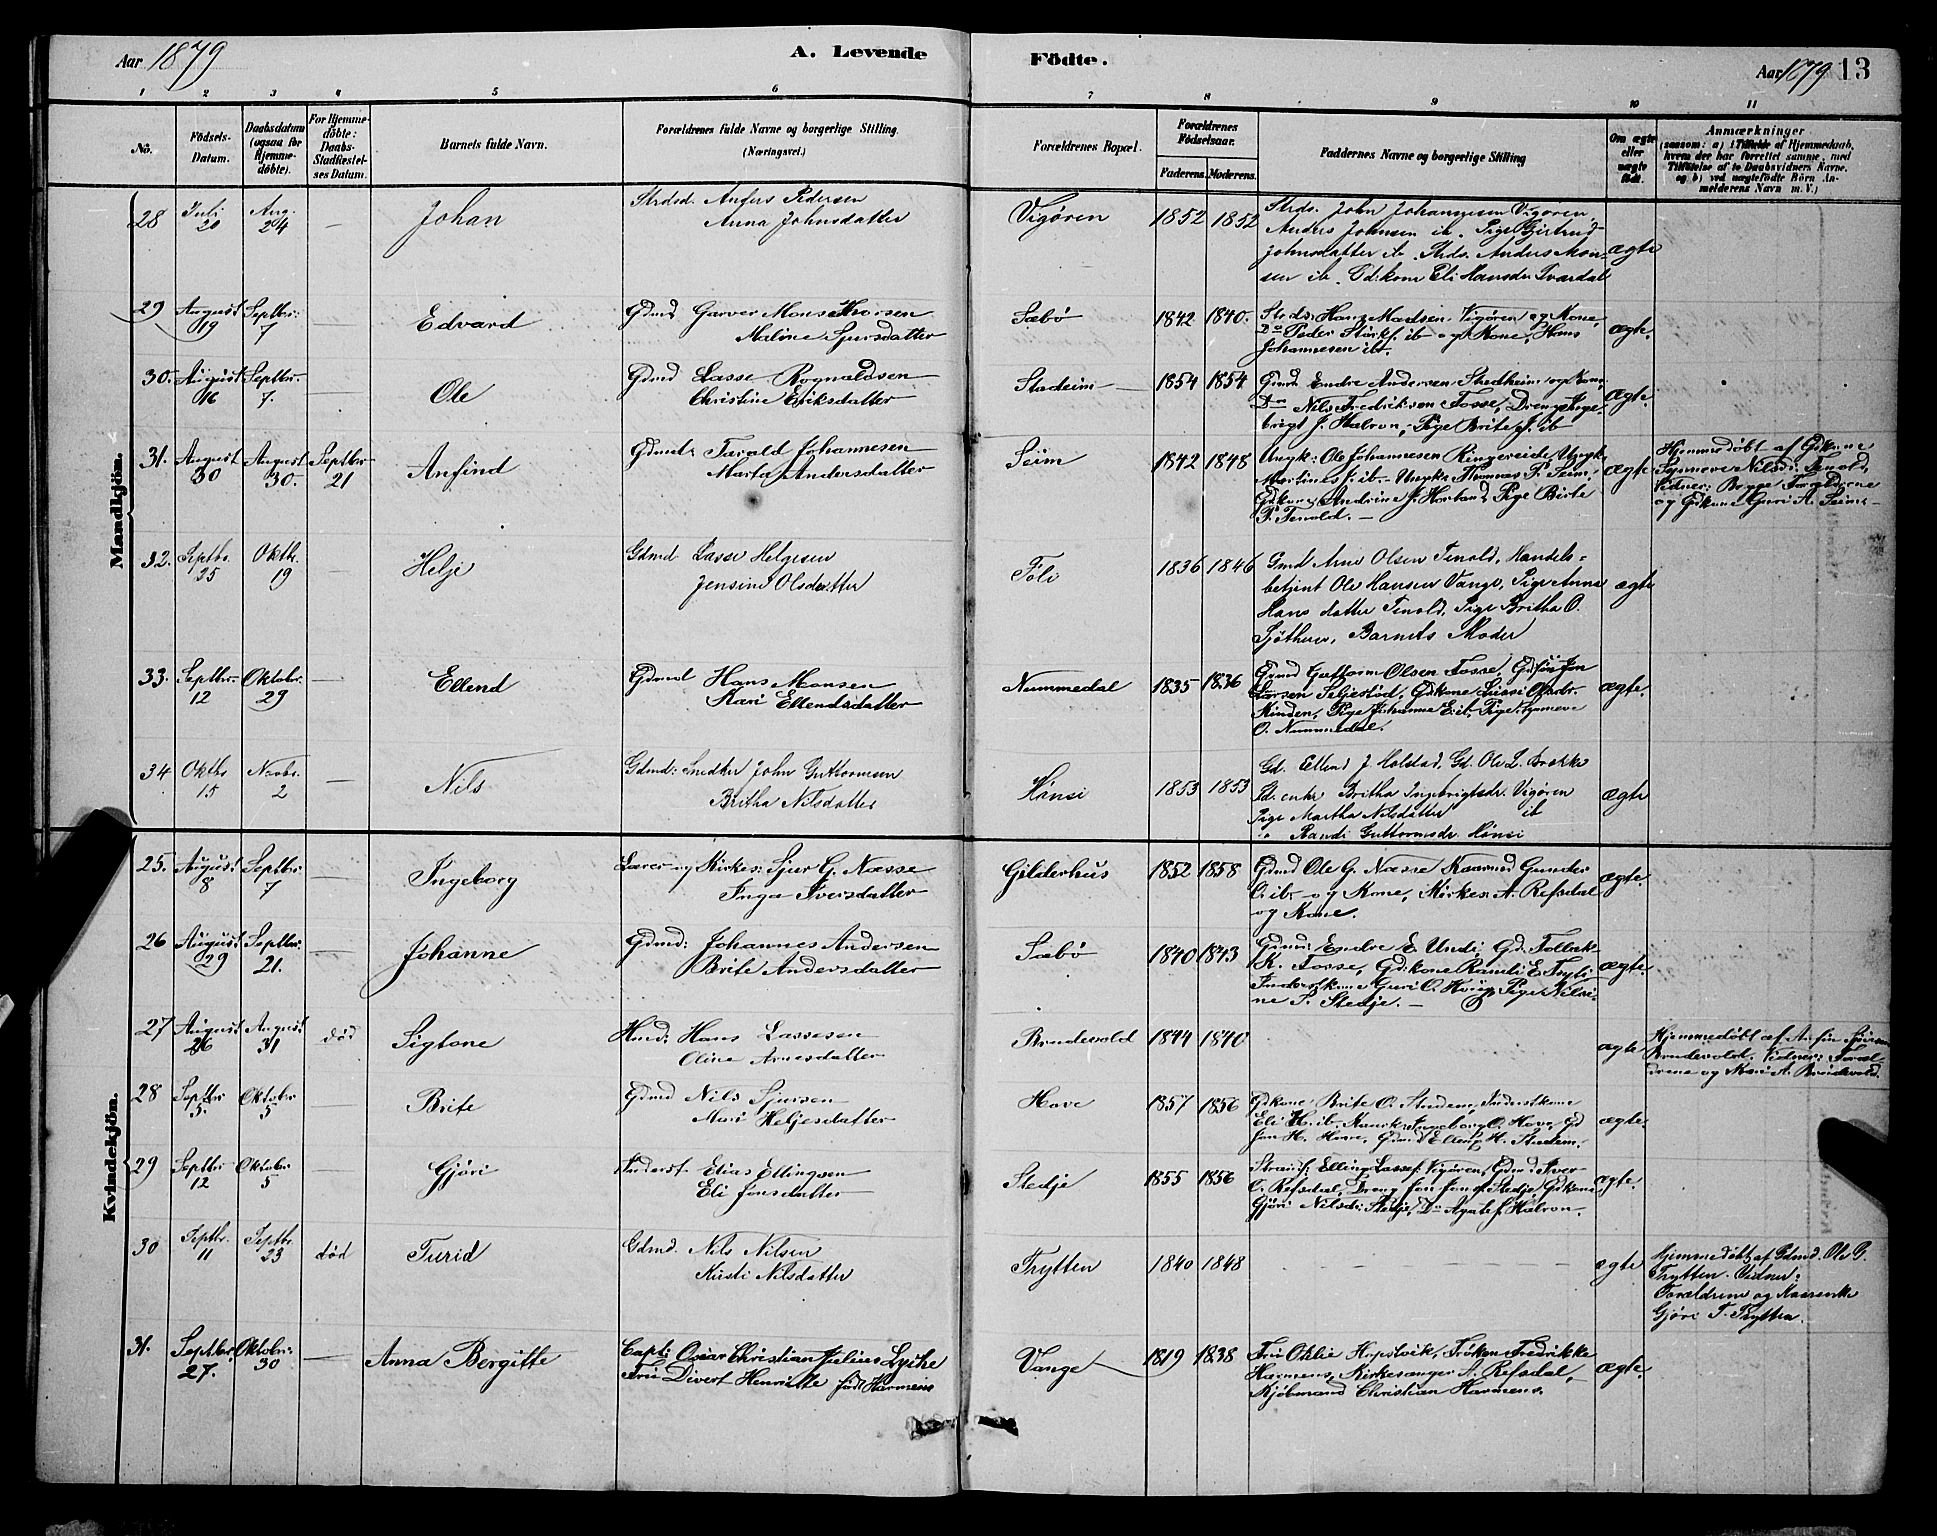 Aar 1879
A. Levende
Födte.
Aar 1879 13
1 2 3 4 5 6 7 8 9 10 11
No.
Födsels-Datum.
Daabsdatum (ogsaa for Hjemme-döbte).
For Hjemme-döbte: Daabs-Stadfæstel-ses Datum.
Barnets fulde Navn.
Forældrenes fulde Navne og borgerlige Stilling.
(Næringsvei.)
Forældrenes Bopæl.
Forældrenes Födselsaar.
Faderens. Moderens.
Faddernes Navne og borgerlige Stilling
Om ægte eller uægte födt.
Anmærkninger
(saasom: a) i Tilfælde af Hjemmedaab,
hvem der har forrettet samme, med
Tilföielse af to Daabsvidners Navne,
og b) ved uægtefödte Börn An-
melderens Navn m. V.)
Mandkjön.
28 Juli 20 Aug. 24 — Johan
Strdsd. Anfers Pedersen
Anna Johnsdatter
Vigøren 1852 1852
Strds. John Johannesen Vigøren,
Anders Johnsen ib. Pige Gjertrud
Johnsdatter ib. Strds. Anders Mon-
sen ib. Gdkone Eli Hansdr Tvardal
ægte
29 August 19 Septbr. 7 — Edvard
Gdmd Garver Mons Thorsen
Maline Sjursdatter
Sæbø 1842 1840.
Strds. Hans Madsen Vigøren og Kone,
Do Peder Størkf. ib og Kone, Hans
Johannesen ib.
ægte.
30. August 16 Septbr. 7. — Ole
Gdmd Lasse Rognaldsen
Christine Eriksdatter
Stadeim 1854 1854
Gmd Endre Andersen Stedheim og Kone,
Do Nils Fredriksen Fosse, Dreng Inge-
brigt J. Hælron, Pige Brite J. ib
ægte.
31. August 30 August 30. Septbr 21 Anfind
Gdmd: Tarald Johannesen
Marta Andersdatter
Seim 1842 1848
Ungk: Ole Johannesen Ringereide, Ungk.
Martines J. ib. Ungk. Thomas P. Seim,
Gdkone Andrine J. Hovland, Pige Birte
P. Tenold. —
ægte
Hjemmedøbt af Gdkone
Synneve Nilsdr. Tenold,
Vidner: Begge Forældrene
og Gdkone Guri A. Seim
32. Septbr. 25 Oktbr. 19 — Helje
Gdmd. Lasse Helgesen
Jensine Olsdatter
Føli 1836 1846
Gmd Arne Olsen Tenold, Handels-
betjent Ole Hansen Vange, Pige Anna
Hans datter Tenold, Pige Britha O.
Sjøthun, Barnets Moder
ægte
33. Septbr. 12 Oktober. 29 — Ellend
Gdmd Hans Monsen
Kari Ellendsdatter
Nummedal 1835 1836
Gdmd Guthorm Olsen Fosse, Gdsøn Jon
Larsen Seljestød, Gdkone Sussi Olsdr.
Kinden, Pige Johanne E. ib, Pige Synneve
O. Nummedal.
ægte.
34 Oktbr 15 Novbr. 2 — Nils
Gdmd: Snedker John Guttormsen
Britha Nilsdatter
Hønsi 1853 1853
Gd. Ellend J. Holstad, Gd. Ole L. Brekke
Gd. enke Britha Ingebrigtsdr. Vigøren
Pige Martha Nilsdatter ib
" Randi Guttormsdr. Hønsi
ægte
Kvindekjön.
25. August 8 Septbr. 7 — Ingeborg
Lærer og Kirkes: Sjur G. Næsse
Inga Iversdatter
Gilderhus 1852 1858
Gdmd Ole G. Næsse Kaarmd Gunder
O. ib — og Kone, Kirkes: A. Refsdal
og Kone.
ægte.
26 August 29 Septbr. 21. — Johanne
Gdmd: Johannes Andersen
Brite Andersdatter
Sæbø 1840 1843
Gdmd: Endre E. Undi, Gd. Tollak
K. Fosse, Gdkone Randi E. Tryti
Inderstkone Guri O. Hove, Pige Nilsi-
ne P. Stedje. —
ægte.
27 August 26 August 31 død Sigtone
Hmd: Hans Lassesen
Oline Arnesdatter
Brudevold 1844 1840
ægte.
Hjemmedøbt af Anfin Iversen
Brudevold. Vidner: Foræl-
drene og Mari A. Brudevold.
28 Septbr 5. Oktober 5 — Brite
Gdmd Nils Sjursen
Mari Heljesdatter
Hove 1857 1856
Gdkone Brite O. Stedem, Inderstkone
Eli H. ib, Kaarks Ingeborg O. Hove, Gd
Jon H. Hove, Gdmd Elling H. Stedem.
ægte.
29 Septbr 12 Oktober 5 — Gjøri
Inderst. Elias Ellingsen
Eli Jonsdatter
Stedje 1855 1856
Strands: Elling Lassef. Vigøren, Gdmd Iver
O. Refsdal, Dreng Jon Jonsf. Stedje, Gdkone
Gjøri Nilsdr. Stedje, Do Agate J. Hælron.
ægte.
30 Septbr. 11 Septbr. 23 død Turid
Gdmd. Nils Nilsen
Kirsti Nilsdatter
Trytten 1840 1848
ægte
Hjemmedøbt af Gdmd. Ole G.
Trytten. Vidner:
Forældrene og Kaarenke
Gjøri T. Trytten.
31. Septbr. 27. Oktober: 30 — Anna Bergitte
Capt: Oscar Christian Julius Lyche
Fru Divert Henriette født Harmens
Vange 1819 1838
Fru Othlie Hopstvik, Frøken Fredrikke
Harmens, Kirkesanger A. Refsdal,
Kjøbmand Christian Harmens.
ægte.